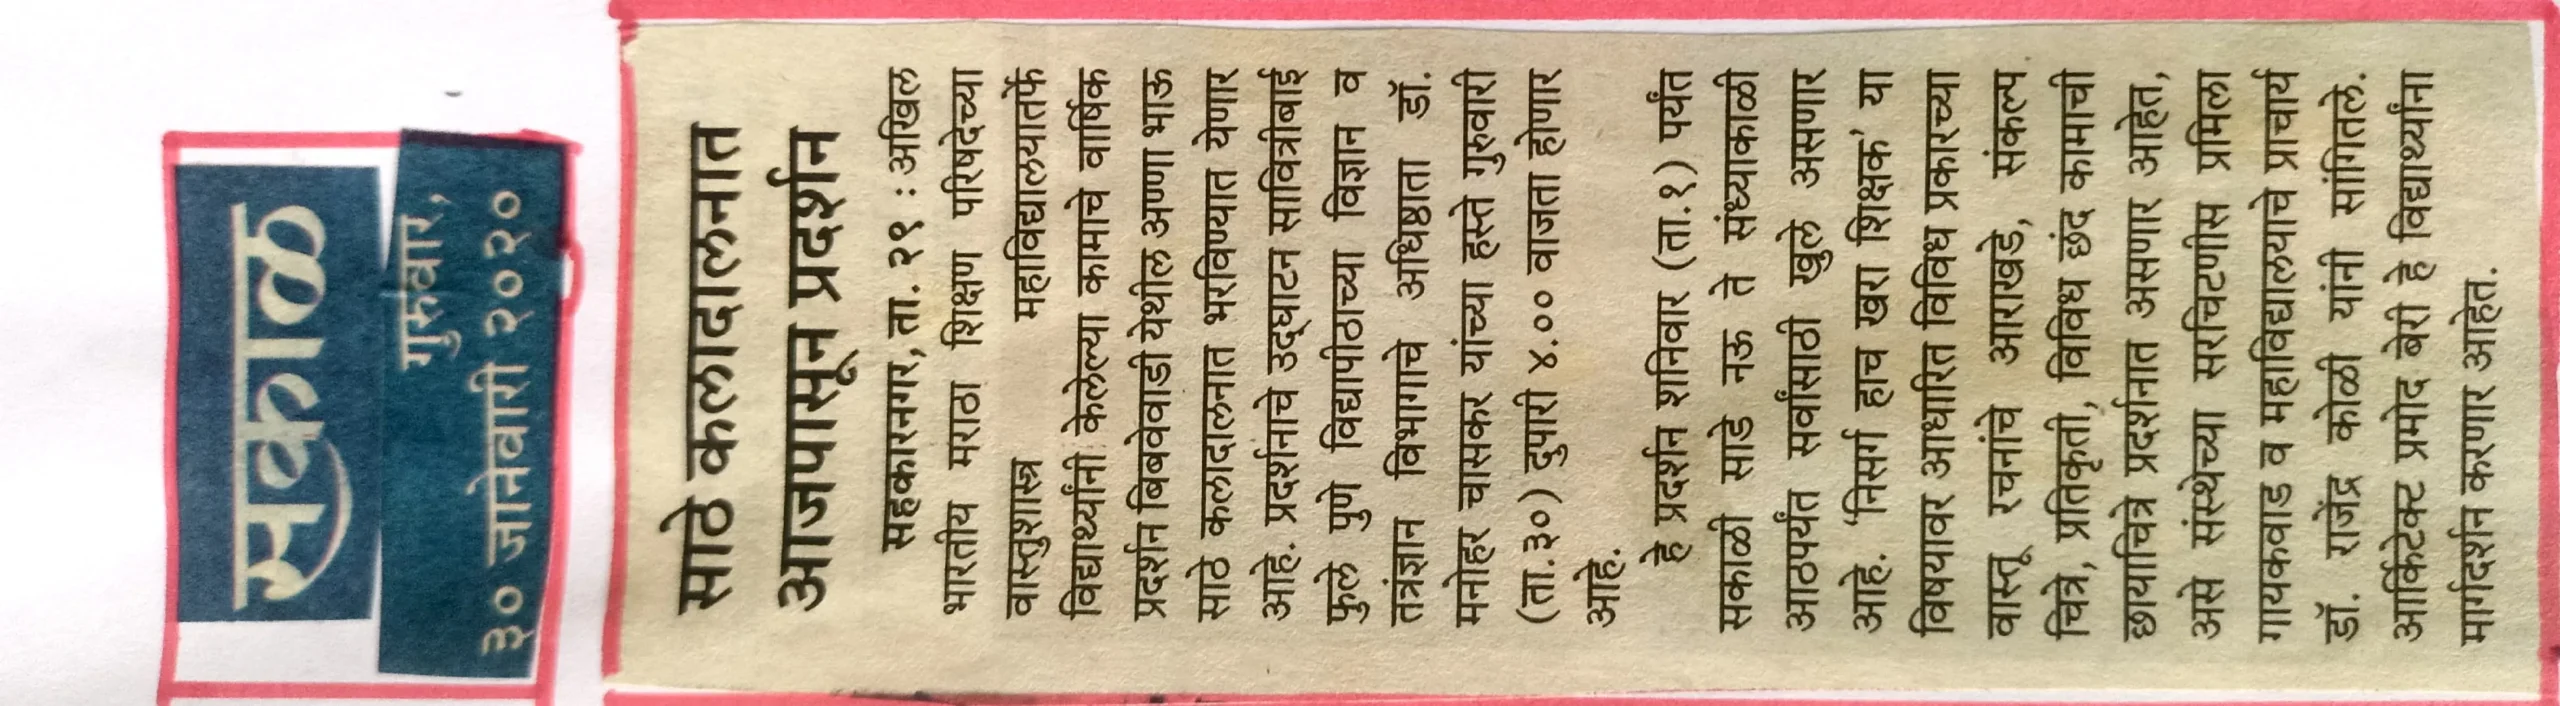 सकाळ
गुरुवार,
३० जानेवारी २०२०
साठे कलादालनात
आजपासून प्रदर्शन
सहकारनगर, ता. २९ : अखिल
भारतीय मराठा शिक्षण परिषदेच्या
वास्तुशास्त्र महाविद्यालयातर्फे
विद्यार्थ्यांनी केलेल्या कामाचे वार्षिक
प्रदर्शन बिबवेवाडी येथील अण्णा भाऊ
साठे कलादालनात भरविण्यात येणार
आहे. प्रदर्शनाचे उद्घाटन सावित्रीबाई
फुले पुणे विद्यापीठाच्या विज्ञान व
तत्रंज्ञान विभागाचे अधिष्ठाता डॉ.
मनोहर चासकर यांच्या हस्ते गुरुवारी
(ता.३०) दुपारी ४.०० वाजता होणार
आहे.
हे प्रदर्शन शनिवार (ता.१) पर्यंत
सकाळी साडे नऊ ते संध्याकाळी
आठपर्यंत सर्वांसाठी खुले असणार
आहे. ‘निसर्ग हाच खरा शिक्षक’ या
विषयावर आधारित विविध प्रकारच्या
वास्तू रचनांचे आराखडे, संकल्प
चित्रे, प्रतिकृती, विविध छंद कामाची
छायाचित्रे प्रदर्शनात असणार आहेत,
असे संस्थेच्या सरचिटणीस प्रमिला
गायकवाड व महाविद्यालयाचे प्राचार्य
डॉ. राजेंद्र कोळी यांनी सांगितले.
आर्किटेक्ट प्रमोद बेरी हे विद्यार्थ्यांना
मार्गदर्शन करणार आहेत.